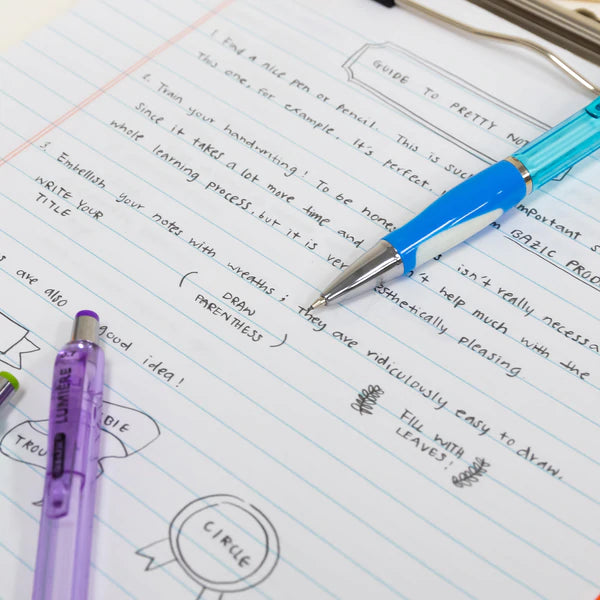 GUIDE TO PRETTY
1. Find a nice pen or pencil. This is important
This one, for example. It's perfect. BAZIC PROD
2. Train your handwriting! To be hones isn't really necessa
since it takes a lot more time and help much with the
whole learning process, but it is very esthetically pleasing
3. Embellish your notes with wreaths; They are ridiculously easy to draw.
WRITE YOUR
TITLE
( DRAW
PARENTHESS )
FILL WITH
LEAVES!
are also good idea!
LUMIÈRE
TROU BIE
CIRCLE